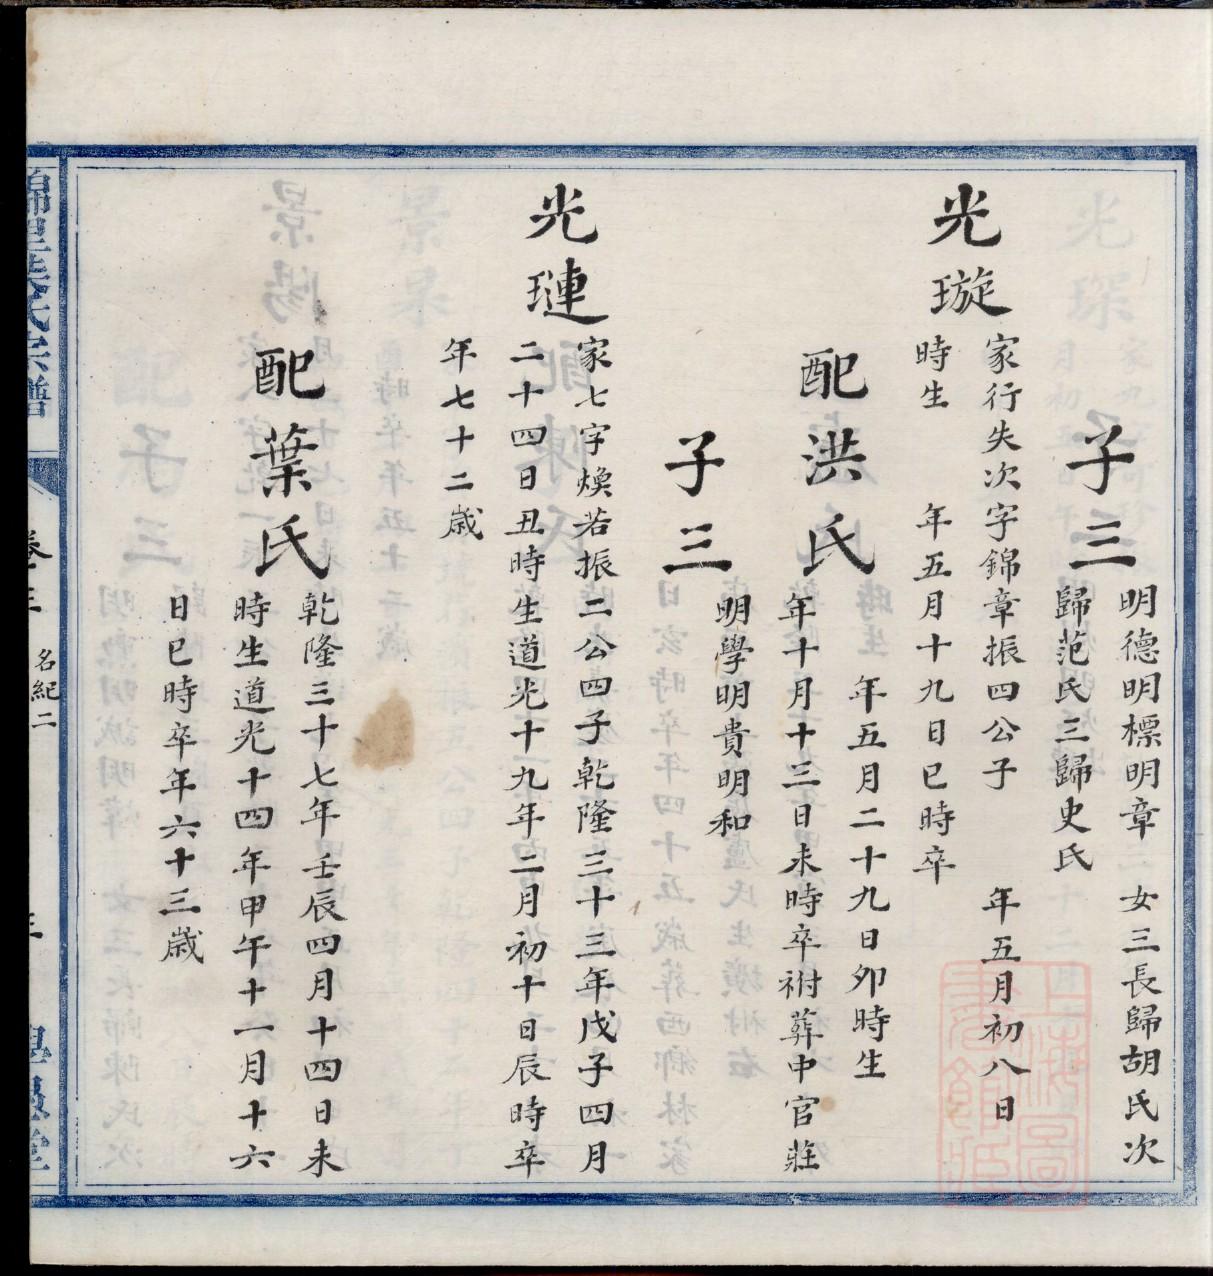 子三
明德明標明章　女三長歸胡氏次
歸范氏三歸史氏
光璇
家行失次字錦章振四公子　年五月初八日
時生　年五月十九日巳時卒
配洪氏
年五月二十九日卯時生
年十月十三日未時卒祔葬中官莊
子三
明學明貴明和
光璉
家七字煥若振二公四子乾隆三十三年戊子四月
二十四日丑時生道光十九年二月初十日辰時卒
年七十二歲
配葉氏
乾隆三十七年壬辰四月十四日未
時生道光十四年甲午十一月十六
日巳時卒年六十三歲
氏宗譜
名紀二